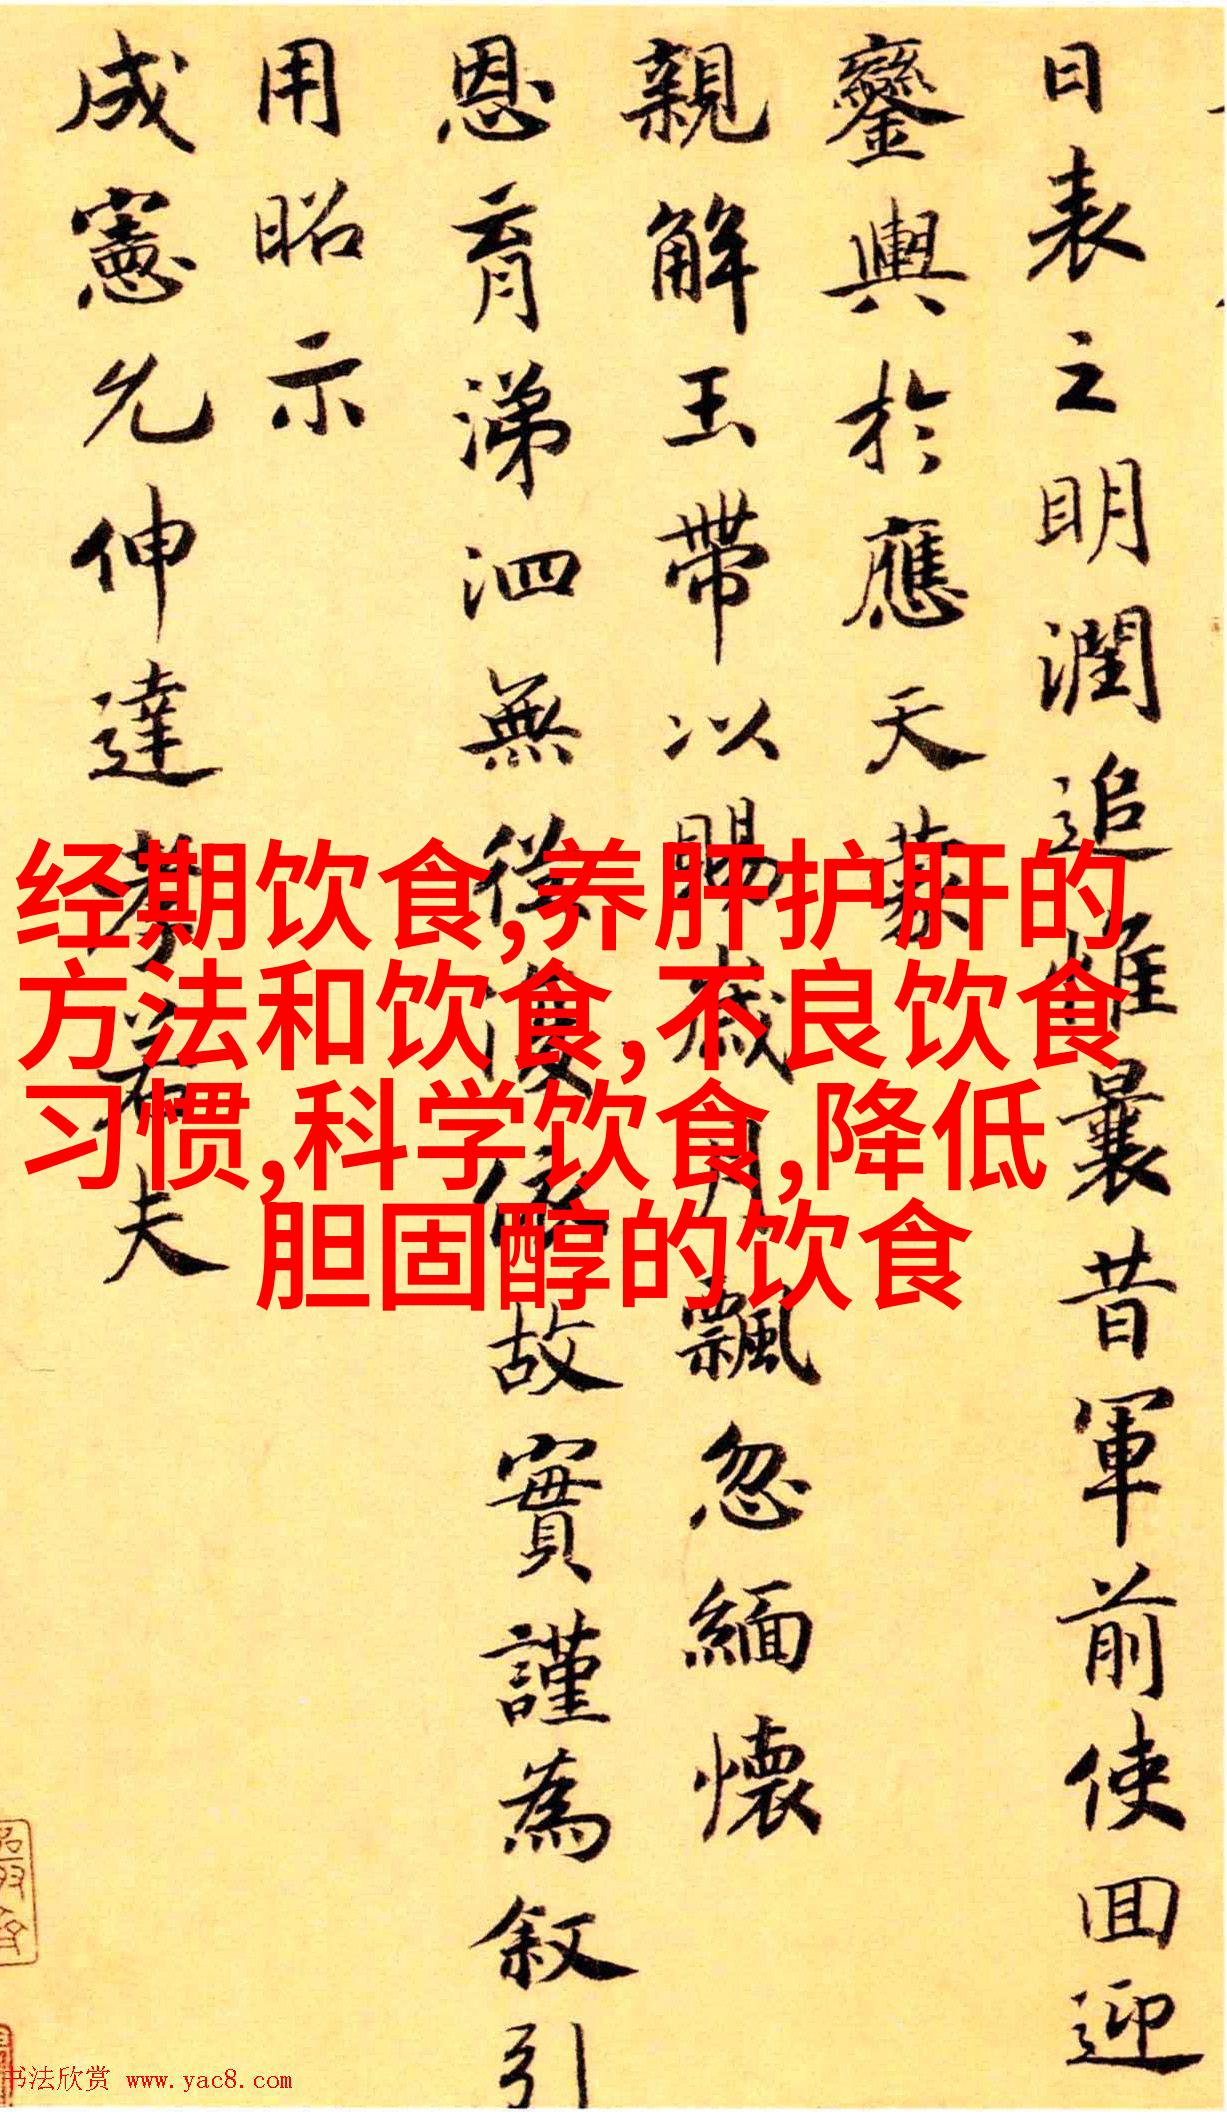 日表之明潤追惟曩昔軍前使回迎
鑾輿於應天蒙
親解玉帶以賜歲月飄忽緬懷
恩育涕泗無從復依故實謹為叙引
用昭示
成憲允伸達孝若夫
经期饮食,养肝护肝的
方法和饮食,不良饮食
习惯,科学饮食,降低
胆固醇的饮食
书法欣赏 www.yac8.com